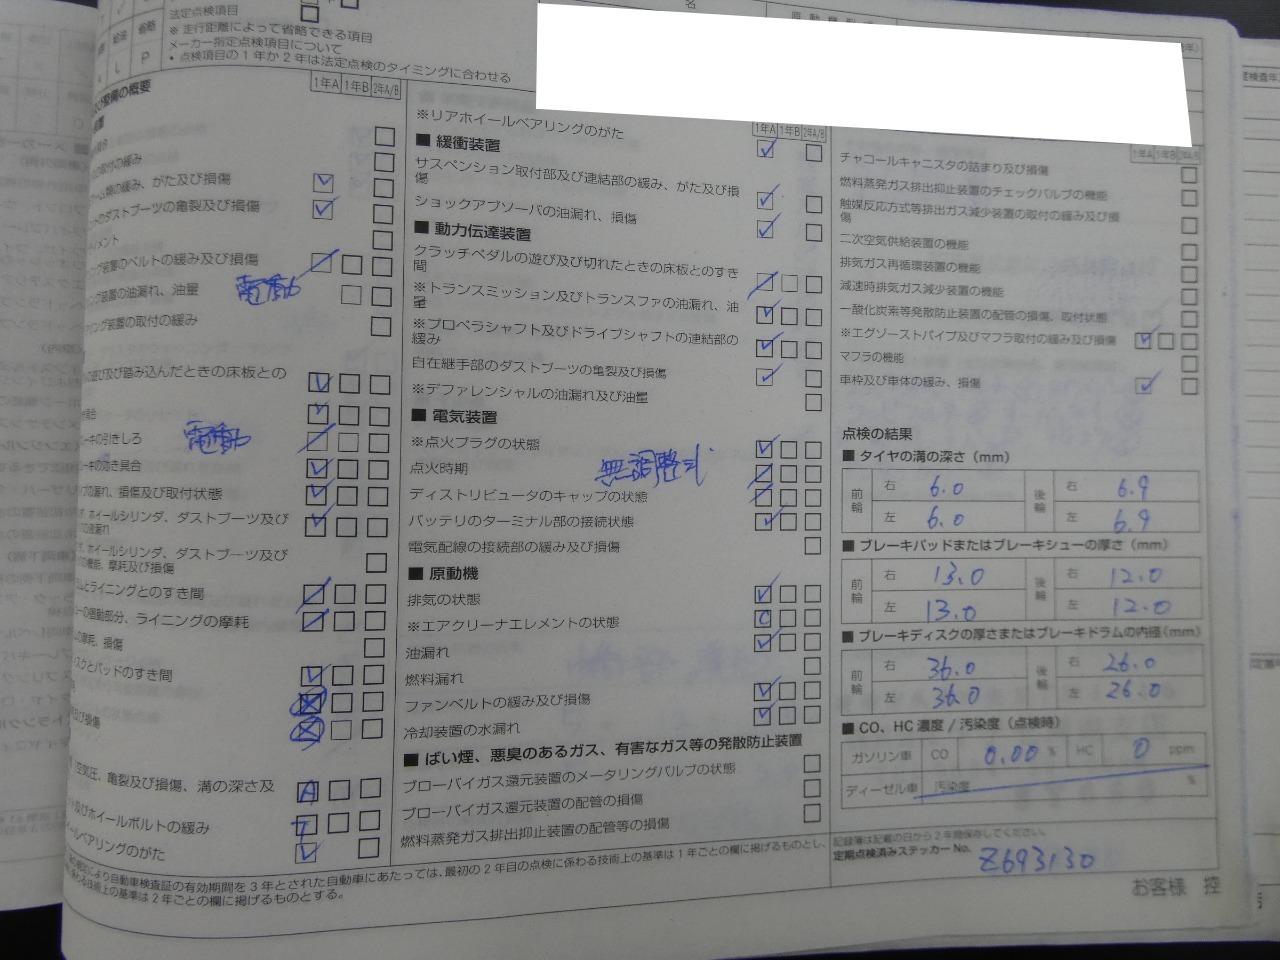 法定点検項目
※ 走行距離によって省略できる項目
メーカー指定点検項目について
• 点検項目の1年か2年は法定点検のタイミングに合わせる
給油
省略
L P
び整備の概要
1年A 1年B 2年A/B
の取付の緩み
の緩み、がた及び損傷
のダストブーツの亀裂及び損傷
装置のベルトの緩み及び損傷
装置の油漏れ、油量
電動
装置の取付の緩み
び踏み込んだときの床板との
キの引きしろ
電動
ーキの効き具合
の漏れ、損傷及び取付状態
、ホイールシリンダ、ダストブーツ及び
の液漏れ
、ホイールシリンダ、ダストブーツ及び
の機能、摩耗及び損傷
とライニングとのすき間
ーの摺動部分、ライニングの摩耗
の摩耗、損傷
ィスクとパッドのすき間
及び損傷
空気圧、亀裂及び損傷、溝の深さ及
A
及びホイールボルトの緩み
T
ールベアリングのがた
により自動車検査証の有効期間を3年とされた自動車にあたっては、最初の2年目の点検に係わる技術上の基準は1年ごとの欄に掲げるものとし、
係わる技術上の基準は2年ごとの欄に掲げるものとする。
※リアホイールベアリングのがた
1年A 1年B 2年A/B
■ 緩衝装置
サスペンション取付部及び連結部の緩み、がた及び損
傷
ショックアブソーバの油漏れ、損傷
■ 動力伝達装置
クラッチペダルの遊び及び切れたときの床板とのすき
間
※トランスミッション及びトランスファの油漏れ、油
量
※プロペラシャフト及びドライブシャフトの連結部の
緩み
自在継手部のダストブーツの亀裂及び損傷
※デファレンシャルの油漏れ及び油量
■ 電気装置
※点火プラグの状態
点火時期
無調整式
ディストリビュータのキャップの状態
バッテリのターミナル部の接続状態
電気配線の接続部の緩み及び損傷
■ 原動機
排気の状態
※エアクリーナエレメントの状態
C
油漏れ
燃料漏れ
ファンベルトの緩み及び損傷
冷却装置の水漏れ
■ ばい煙、悪臭のあるガス、有害なガス等の発散防止装置
ブローバイガス還元装置のメータリングバルブの状態
ブローバイガス還元装置の配管の損傷
燃料蒸発ガス排出抑止装置の配管等の損傷
1年A 1年B 2年A/B
チャコールキャニスタの詰まり及び損傷
燃料蒸発ガス排出抑止装置のチェックバルブの機能
触媒反応方式等排出ガス減少装置の取付の緩み及び損
傷
二次空気供給装置の機能
排気ガス再循環装置の機能
減速時排気ガス減少装置の機能
一酸化炭素等発散防止装置の配管の損傷、取付状態
※エグゾーストパイプ及びマフラ取付の緩み及び損傷
マフラの機能
車枠及び車体の緩み、損傷
点検の結果
■ タイヤの溝の深さ（mm）
前輪 右 6.0 後輪 右 6.9
左 6.0 左 6.9
■ ブレーキパッドまたはブレーキシューの厚さ（mm）
前輪 右 13.0 後輪 右 12.0
左 13.0 左 12.0
■ ブレーキディスクの厚さまたはブレーキドラムの内径（mm）
前輪 右 36.0 後輪 右 26.0
左 36.0 左 26.0
■ CO、HC 濃度 / 汚染度（点検時）
ガソリン車 CO 0.00 % HC 0 ppm
ディーゼル車 汚染度 %
記録簿は記載の日から2年間保存してください。
定期点検済みステッカー No. Z693130
お客様 控